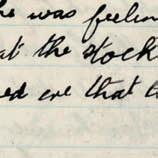 he was feelin
at the stock
ed me that t